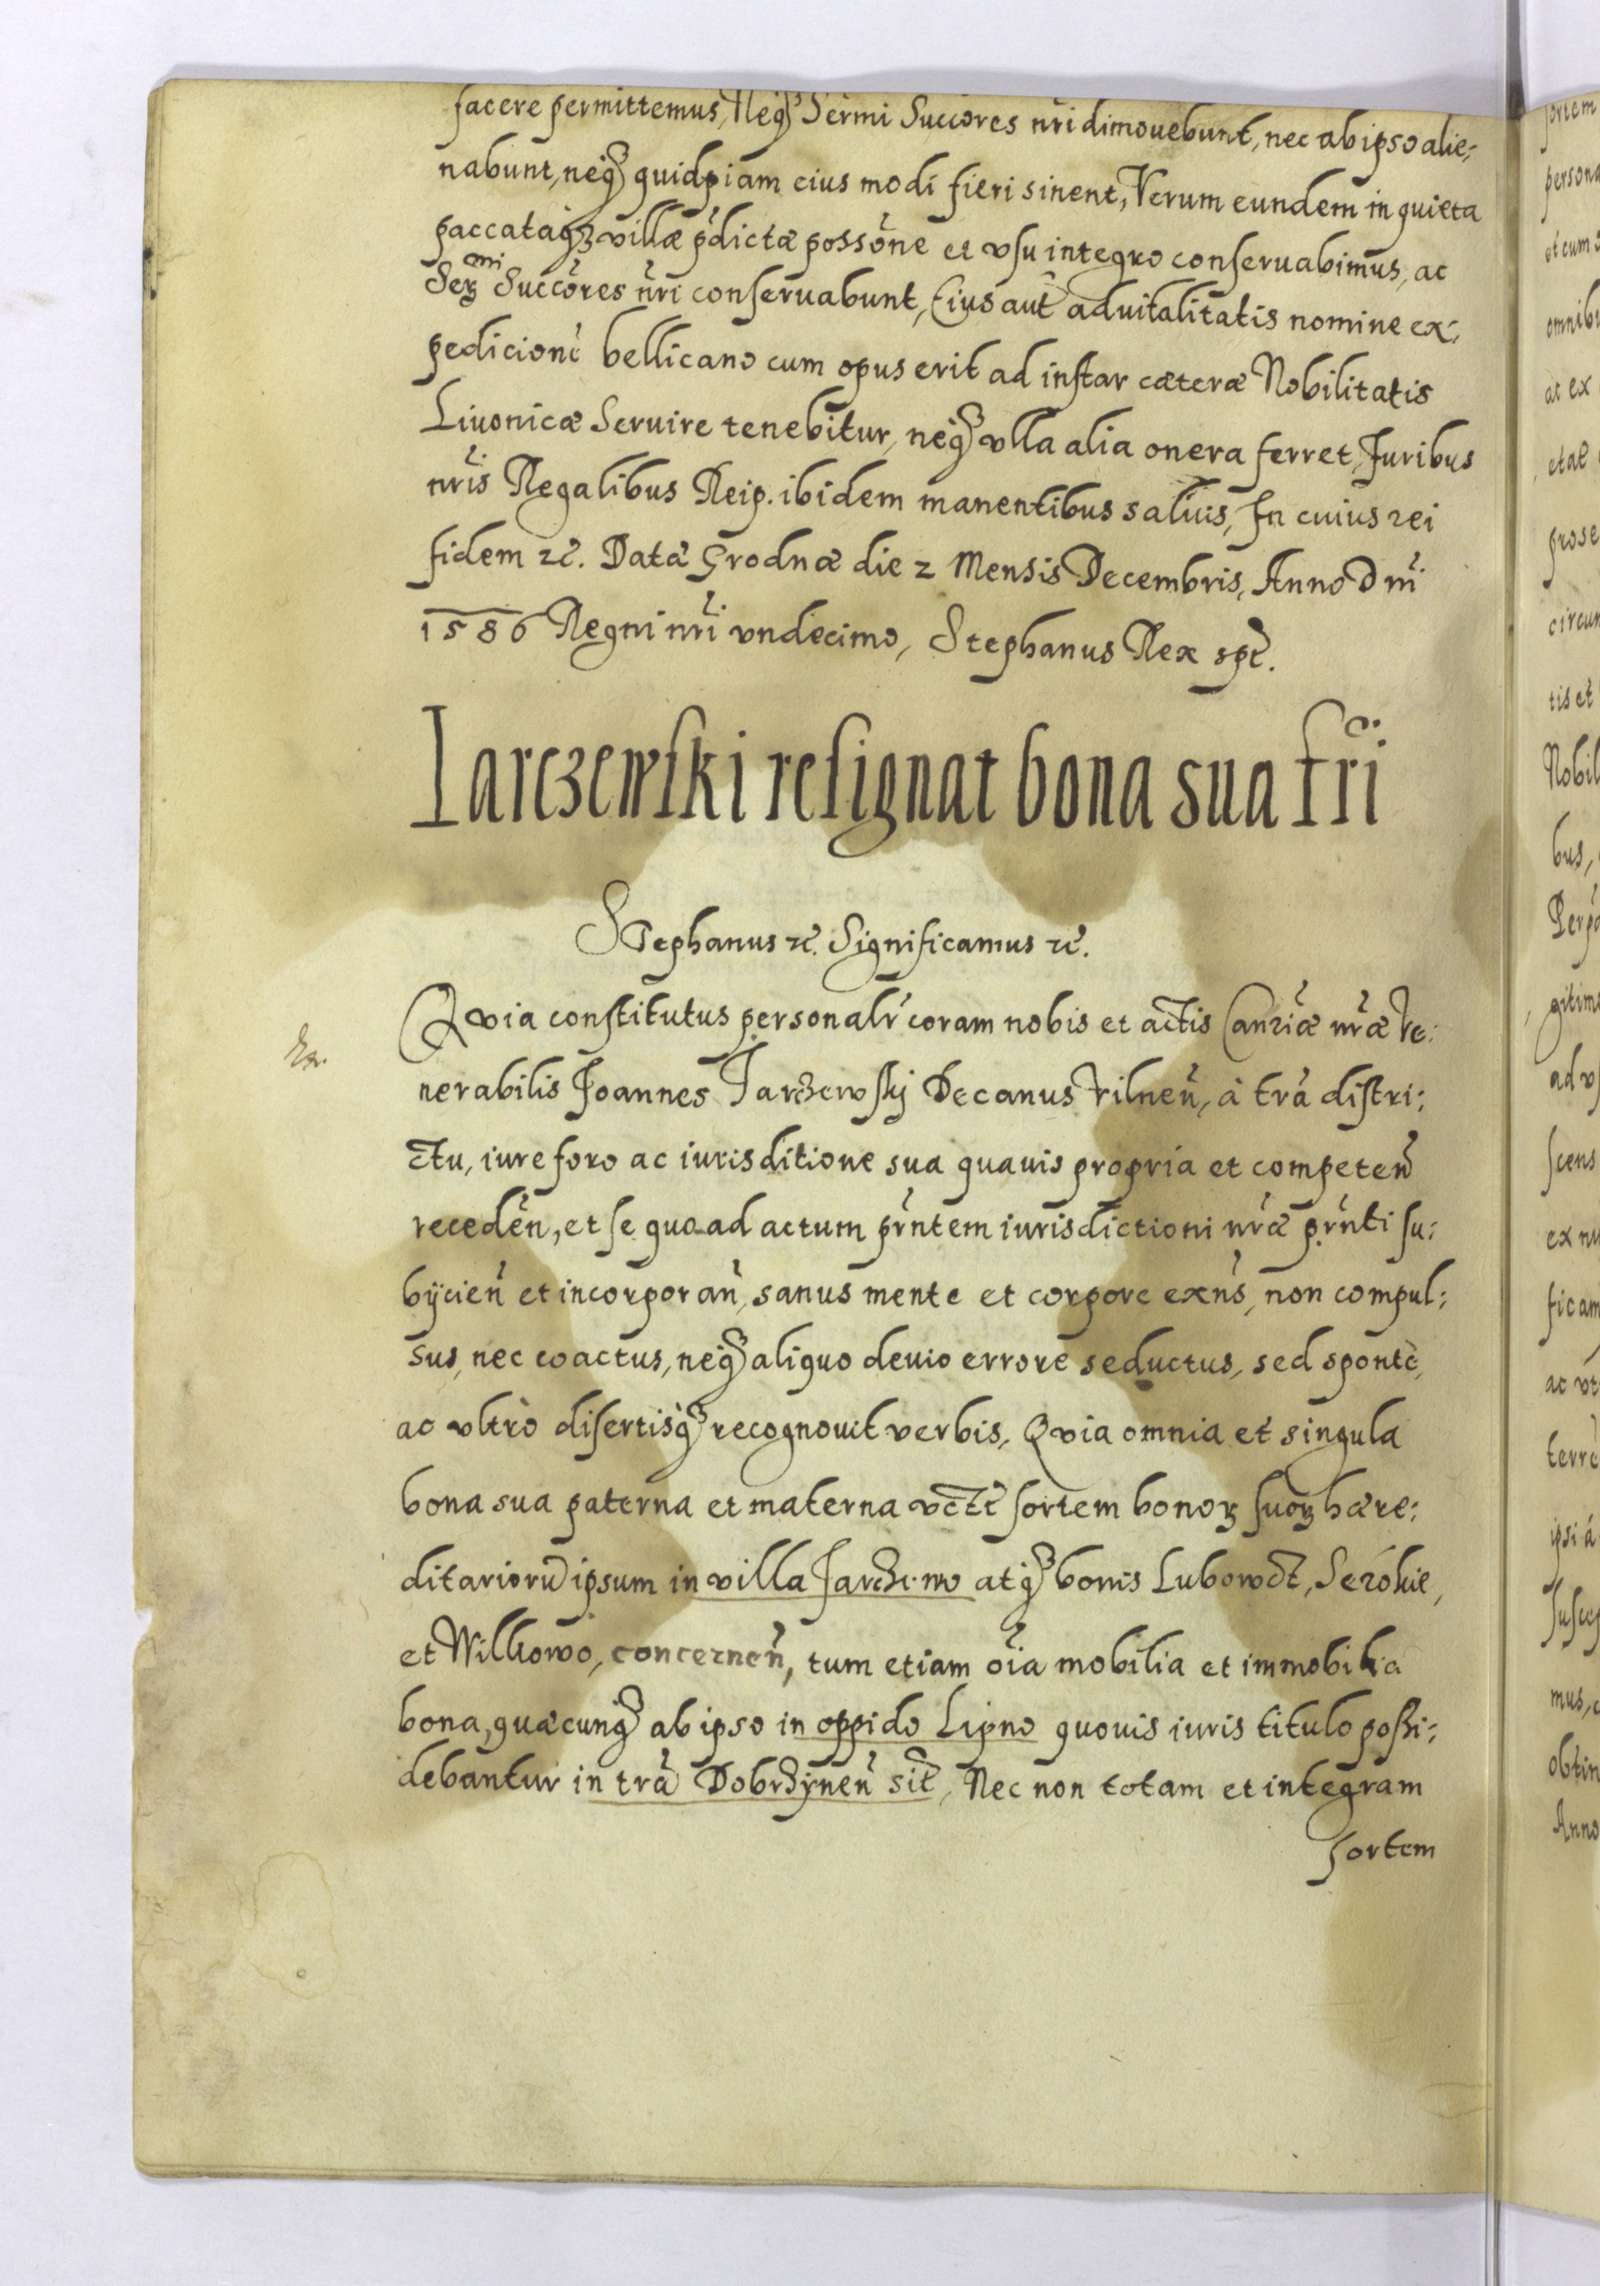 facere permittemus, Neqȝ Sermi Succores nri dimouebunt, nec ab ipso alie:
nabunt, neqȝ quidpiam eius modi fieri sinent, Verum eundem in quieta
paccataqȝ villæ pdictæ possone et vsu integro conseruabimus, ac
Sermi Succores nri conseruabunt, Eius aut aduitalitatis nomine ex:
pedicione bellicano cum opus erit ad instar cæteræ Nobilitatis
Liuonicæ Seruire tenebitur, neqȝ vlla alia onera ferret, Iuribus
nris Regalibus Reip. ibidem manentibus saluis, In cuius rei
fidem zc. Data Grodnæ die 2 Mensis Decembris, Anno Dni
1586 Regni nri vndecimo, Stephanus Rex spt.
Iarczewski resignat bona sua fri
Stephanus zc. Significamus zc.
Qvia constitutus personalr coram nobis et actis Canriæ nræ Ve:
nerabilis Joannes Jarczewskj Decanus Vilnen, à tra distri:
ctu, iure foro ac iurisditione sua quauis propria et competen
receden, et se quo ad actum prntem iurisdictioni nræ prnti su:
bijcien et incorporan, sanus mente et corpore exns, non compul:
sus, nec coactus, neqȝ aliquo deuio errore seductus, sed spontè,
ac vltrò disertisqȝ recognouit verbis, Qvia omnia et singula
bona sua paterna et materna vctt sortem bonoꝝ suoꝝ hære:
ditarioru ipsum in villa Jarczewo atqȝ bonis Lubowct, Serokie,
et Wilkowo, concernen, tum etiam oia mobilia et immobilia
bona, quæcunqȝ ab ipso in oppido Lipno quouis iuris titulo possi:
debantur in tra Dobrzynen sit, Nec non totam et integram
sortem